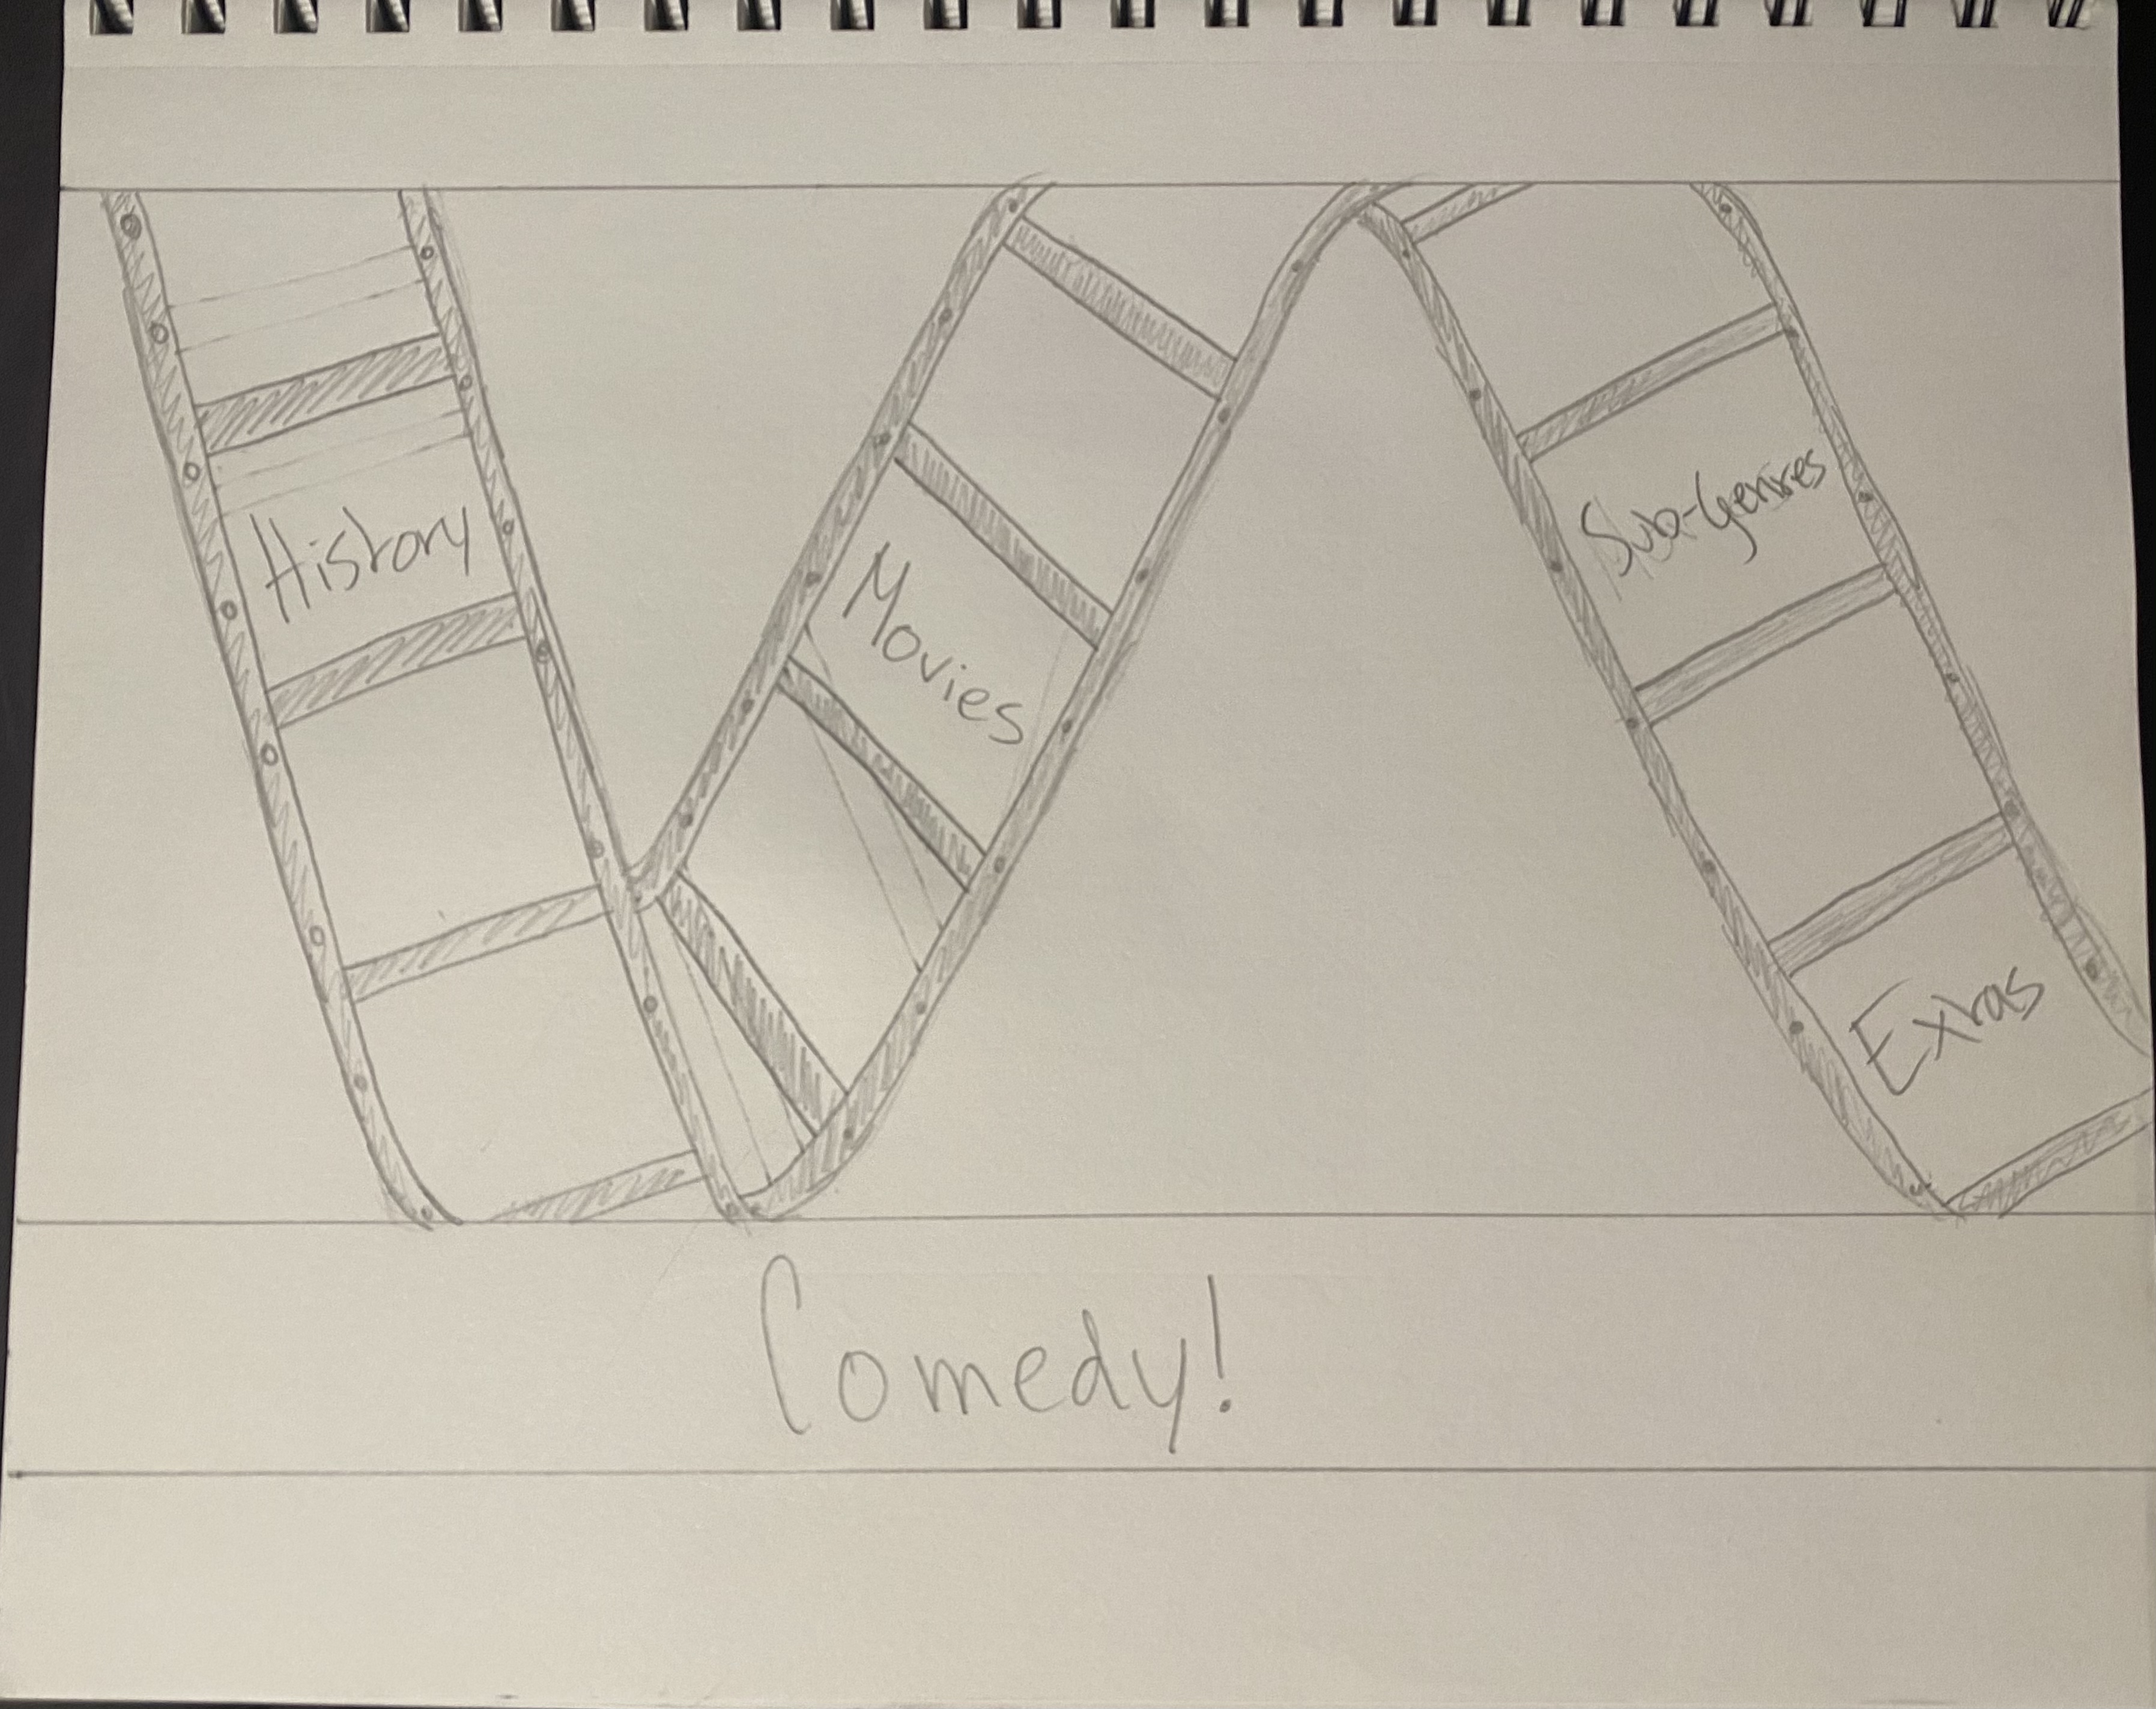 History
Movies
Sub-Genres
Extras
Comedy!